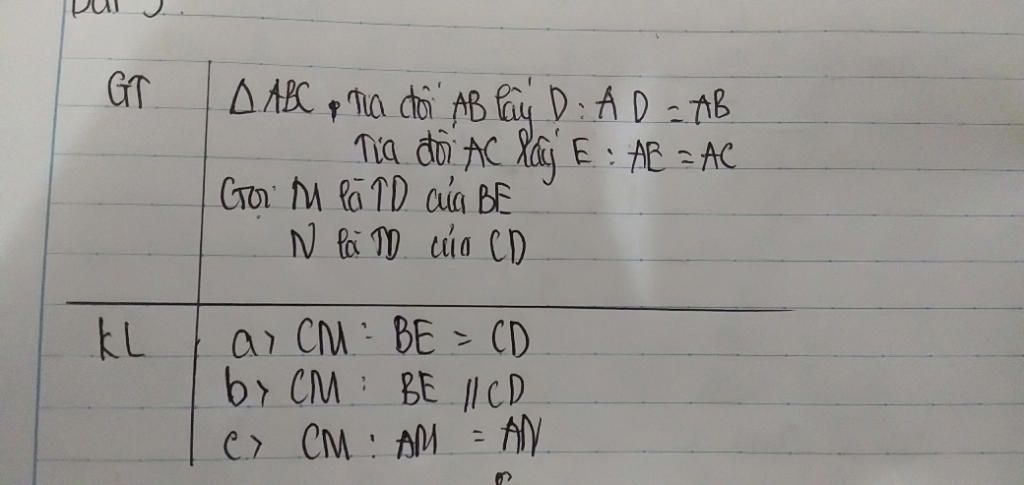 Bài 3.
GT
Δ ABC, Tia đối AB lấy D : AD = AB
Tia đối AC lấy E : AE = AC
Gọi M là TD của BE
N là TD của CD
KL
a> CM : BE = CD
b> CM : BE // CD
c> CM : AM = AN